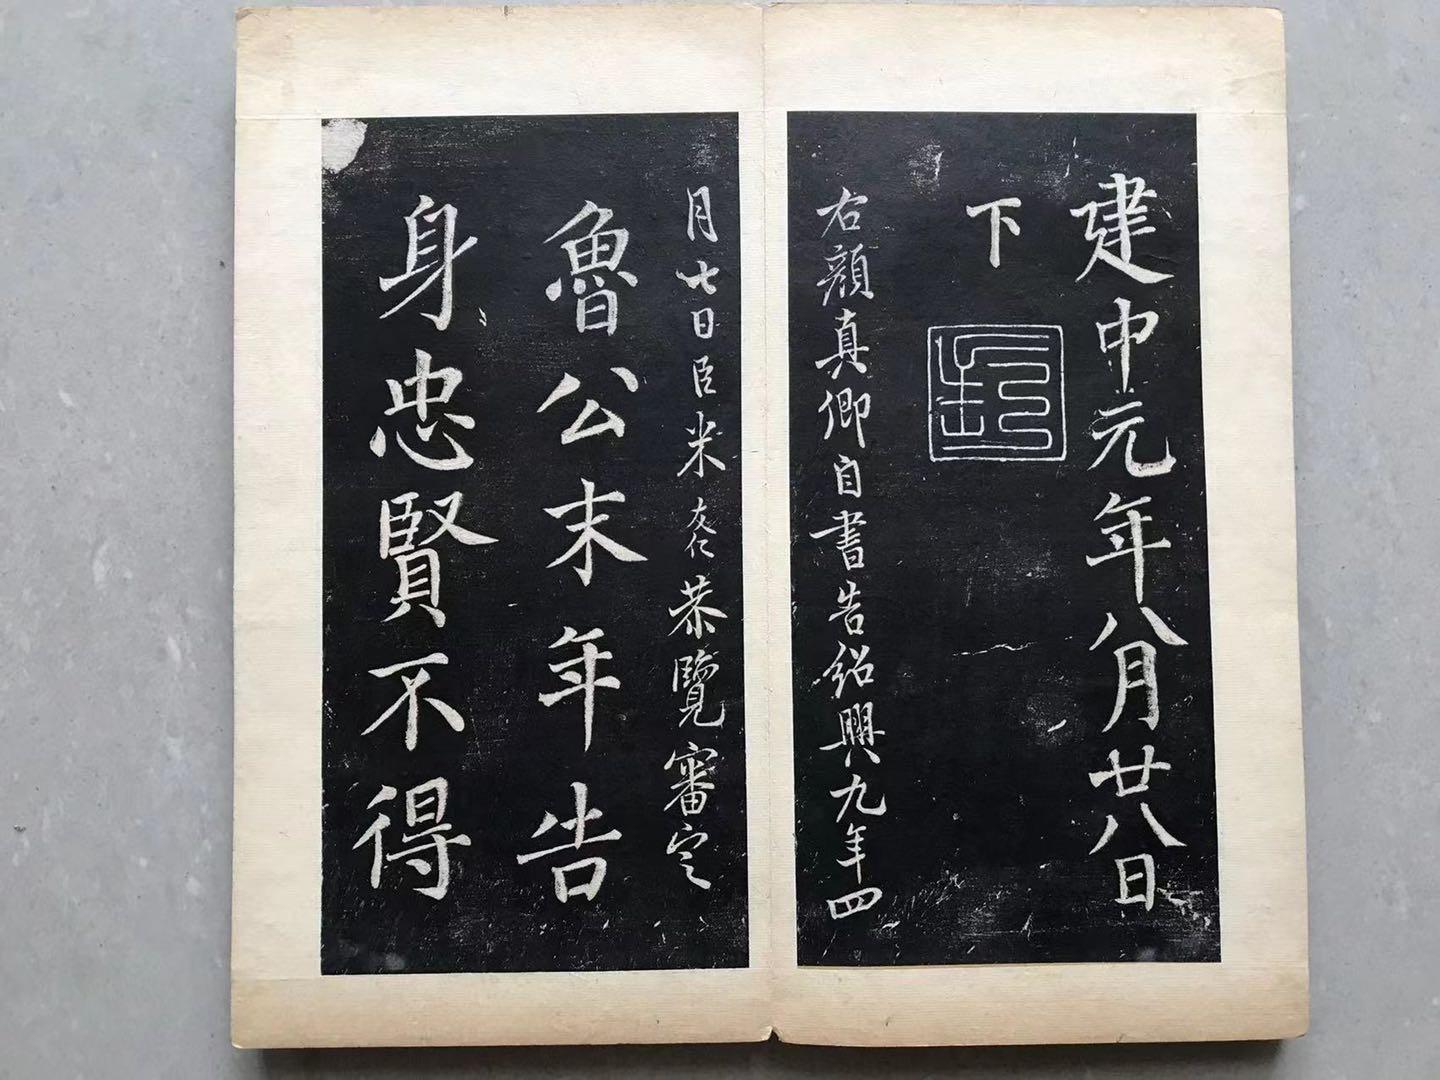 建中元年八月廿八日
下
右顔真卿自書告紹興九年四
月七日臣米友仁恭覽審定
魯公末年告
身忠賢不得